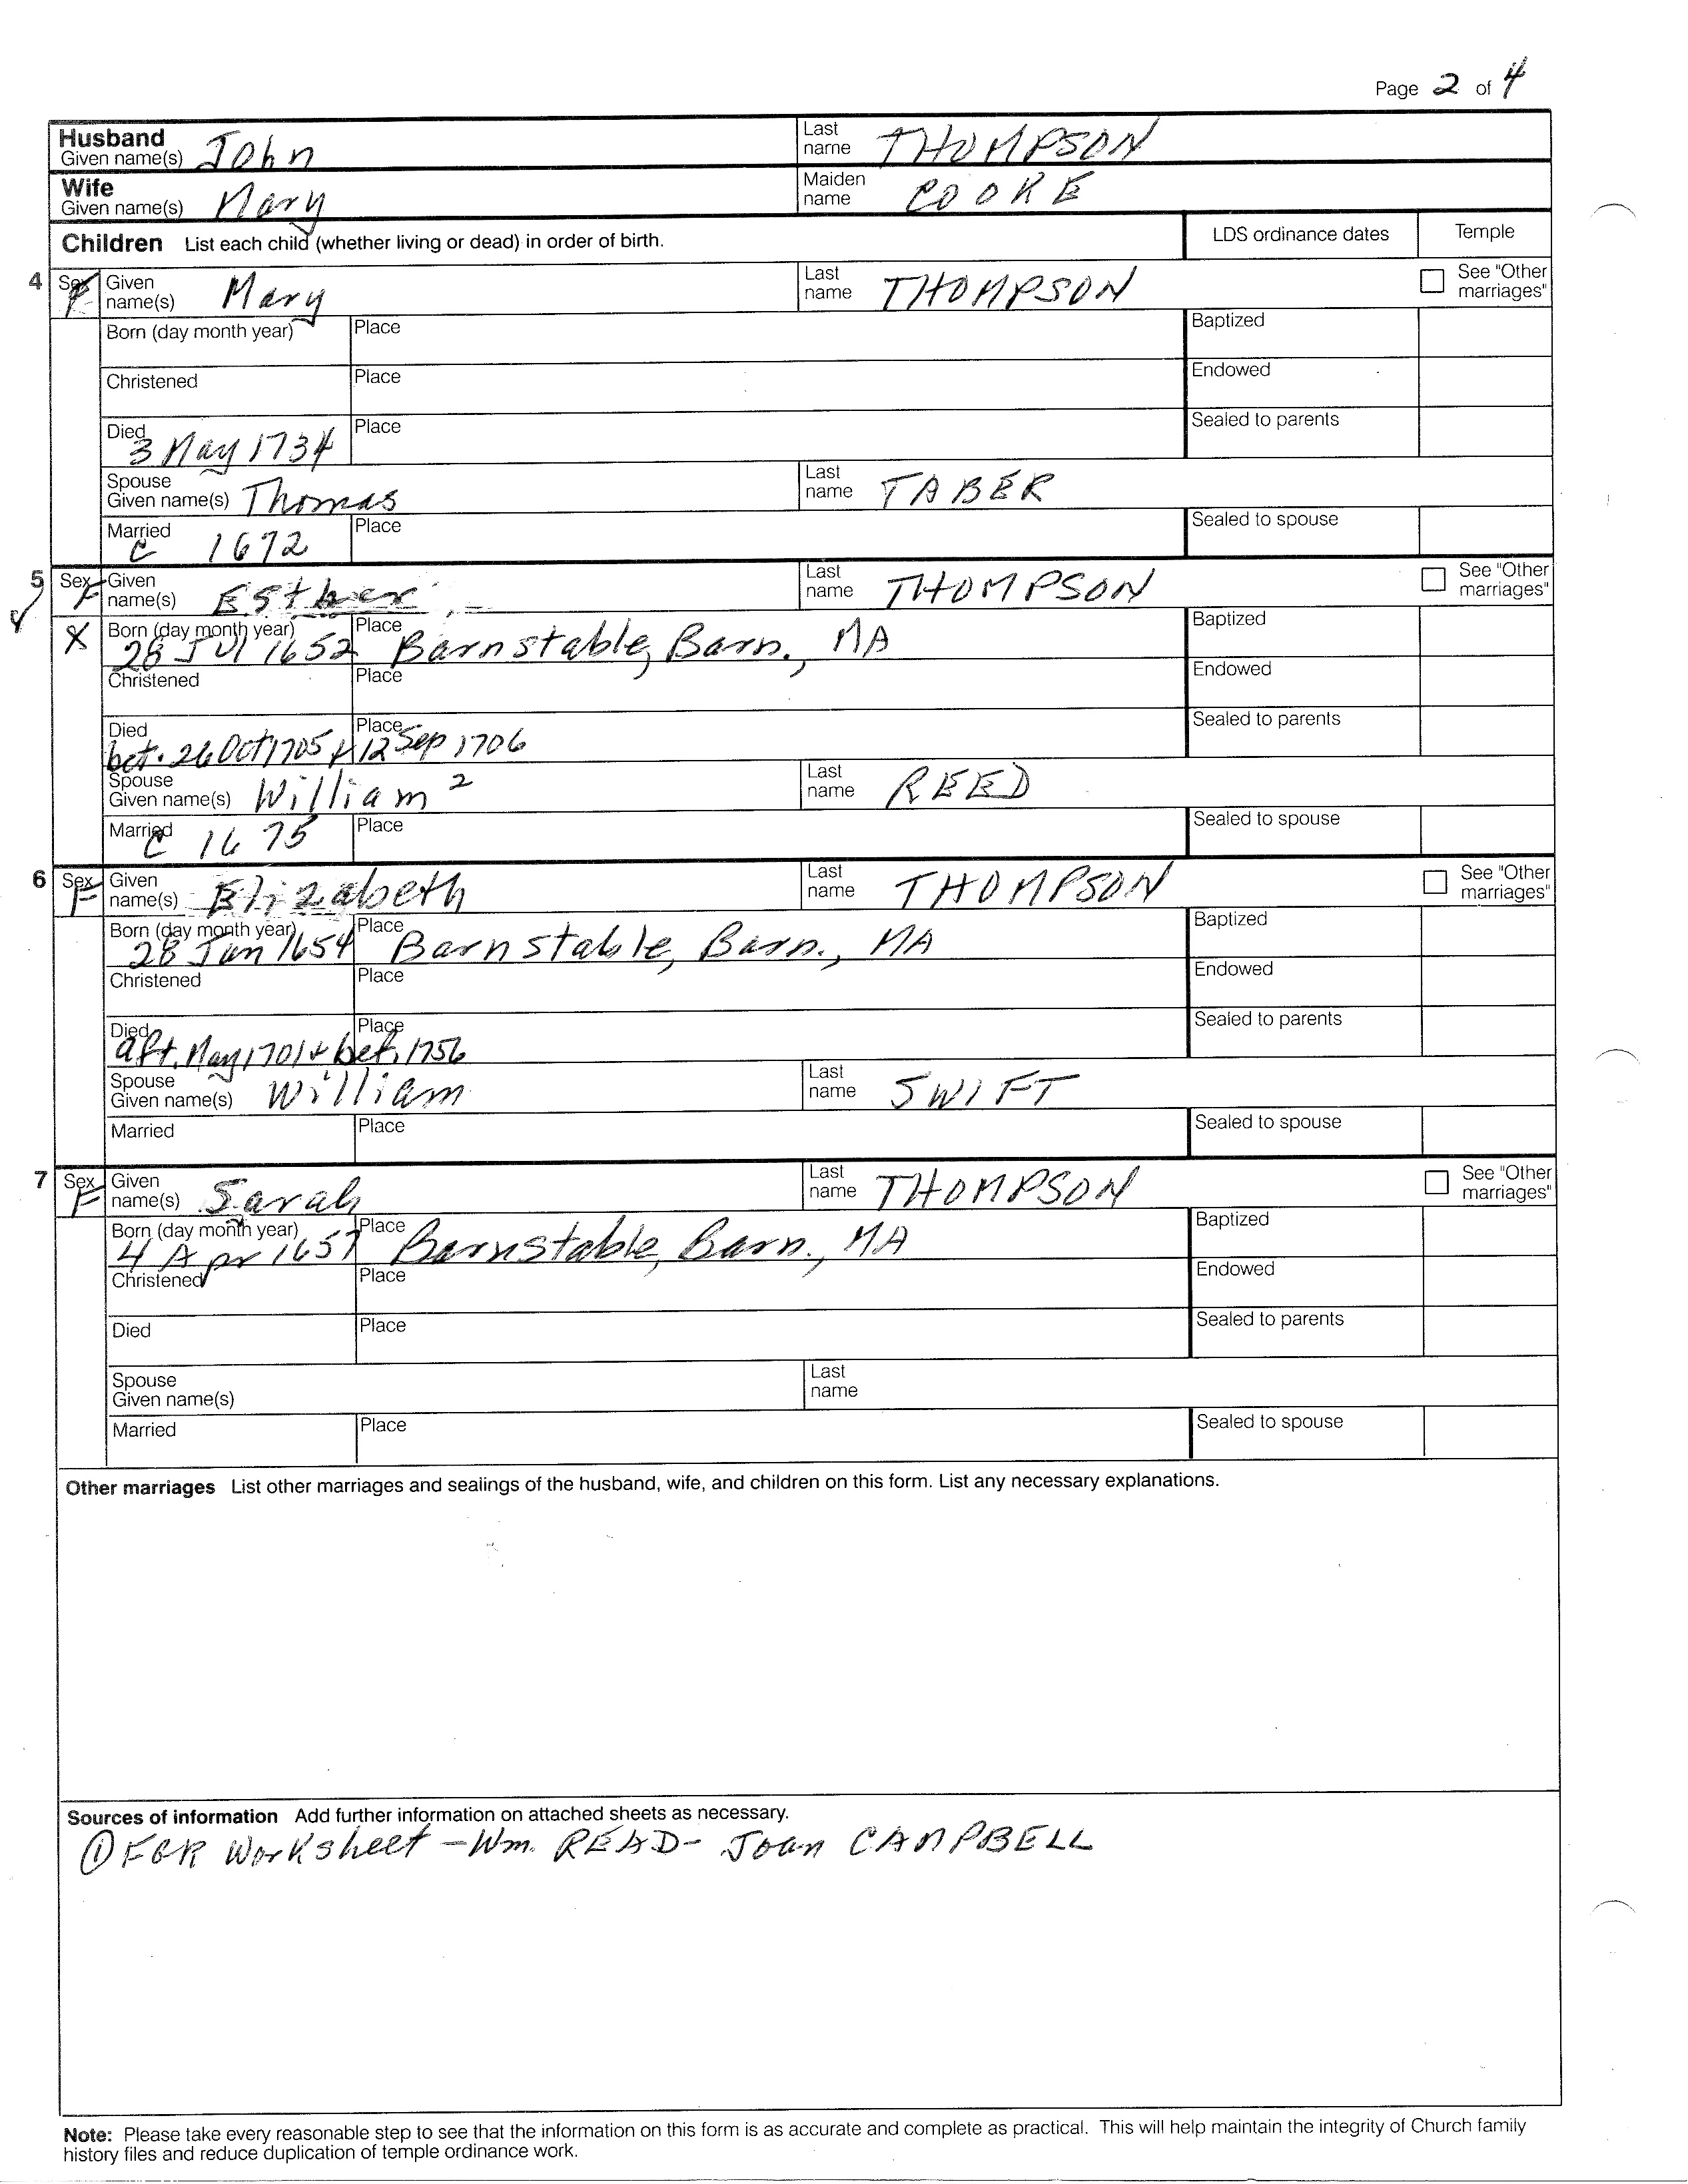 Page 2 of 4
Husband Given name(s) John Last name THOMPSON
Wife Given name(s) Mary Maiden name COOKE
Children List each child (whether living or dead) in order of birth. LDS ordinance dates Temple
4 Sex F Given name(s) Mary Last name THOMPSON See "Other marriages"
Born (day month year) Place Baptized
Christened Place Endowed
Died 3 May 1734 Place Sealed to parents
Spouse Given name(s) Thomas Last name TABER
Married C 1672 Place Sealed to spouse
5 Sex F Given name(s) Esther Last name THOMPSON See "Other marriages"
X Born (day month year) 28 JUl 1652 Place Barnstable, Barn., MA Baptized
Christened Place Endowed
Died bet. 26 Oct 1705 & 12 Sep 1706 Place Sealed to parents
Spouse Given name(s) William 2 Last name REED
Married C 1675 Place Sealed to spouse
6 Sex F Given name(s) Elizabeth Last name THOMPSON See "Other marriages"
Born (day month year) 28 Jan 1654 Place Barnstable, Barn., MA Baptized
Christened Place Endowed
Died aft. May 1701 & bef. 1756 Place Sealed to parents
Spouse Given name(s) William Last name SWIFT
Married Place Sealed to spouse
7 Sex F Given name(s) Sarah Last name THOMPSON See "Other marriages"
Born (day month year) 4 Apr 1657 Place Barnstable, Barn., MA Baptized
Christened Place Endowed
Died Place Sealed to parents
Spouse Given name(s) Last name
Married Place Sealed to spouse
Other marriages List other marriages and sealings of the husband, wife, and children on this form. List any necessary explanations.
Sources of information Add further information on attached sheets as necessary.
① FGR Worksheet - Wm. READ - Joan CAMPBELL
Note: Please take every reasonable step to see that the information on this form is as accurate and complete as practical. This will help maintain the integrity of Church family
history files and reduce duplication of temple ordinance work.